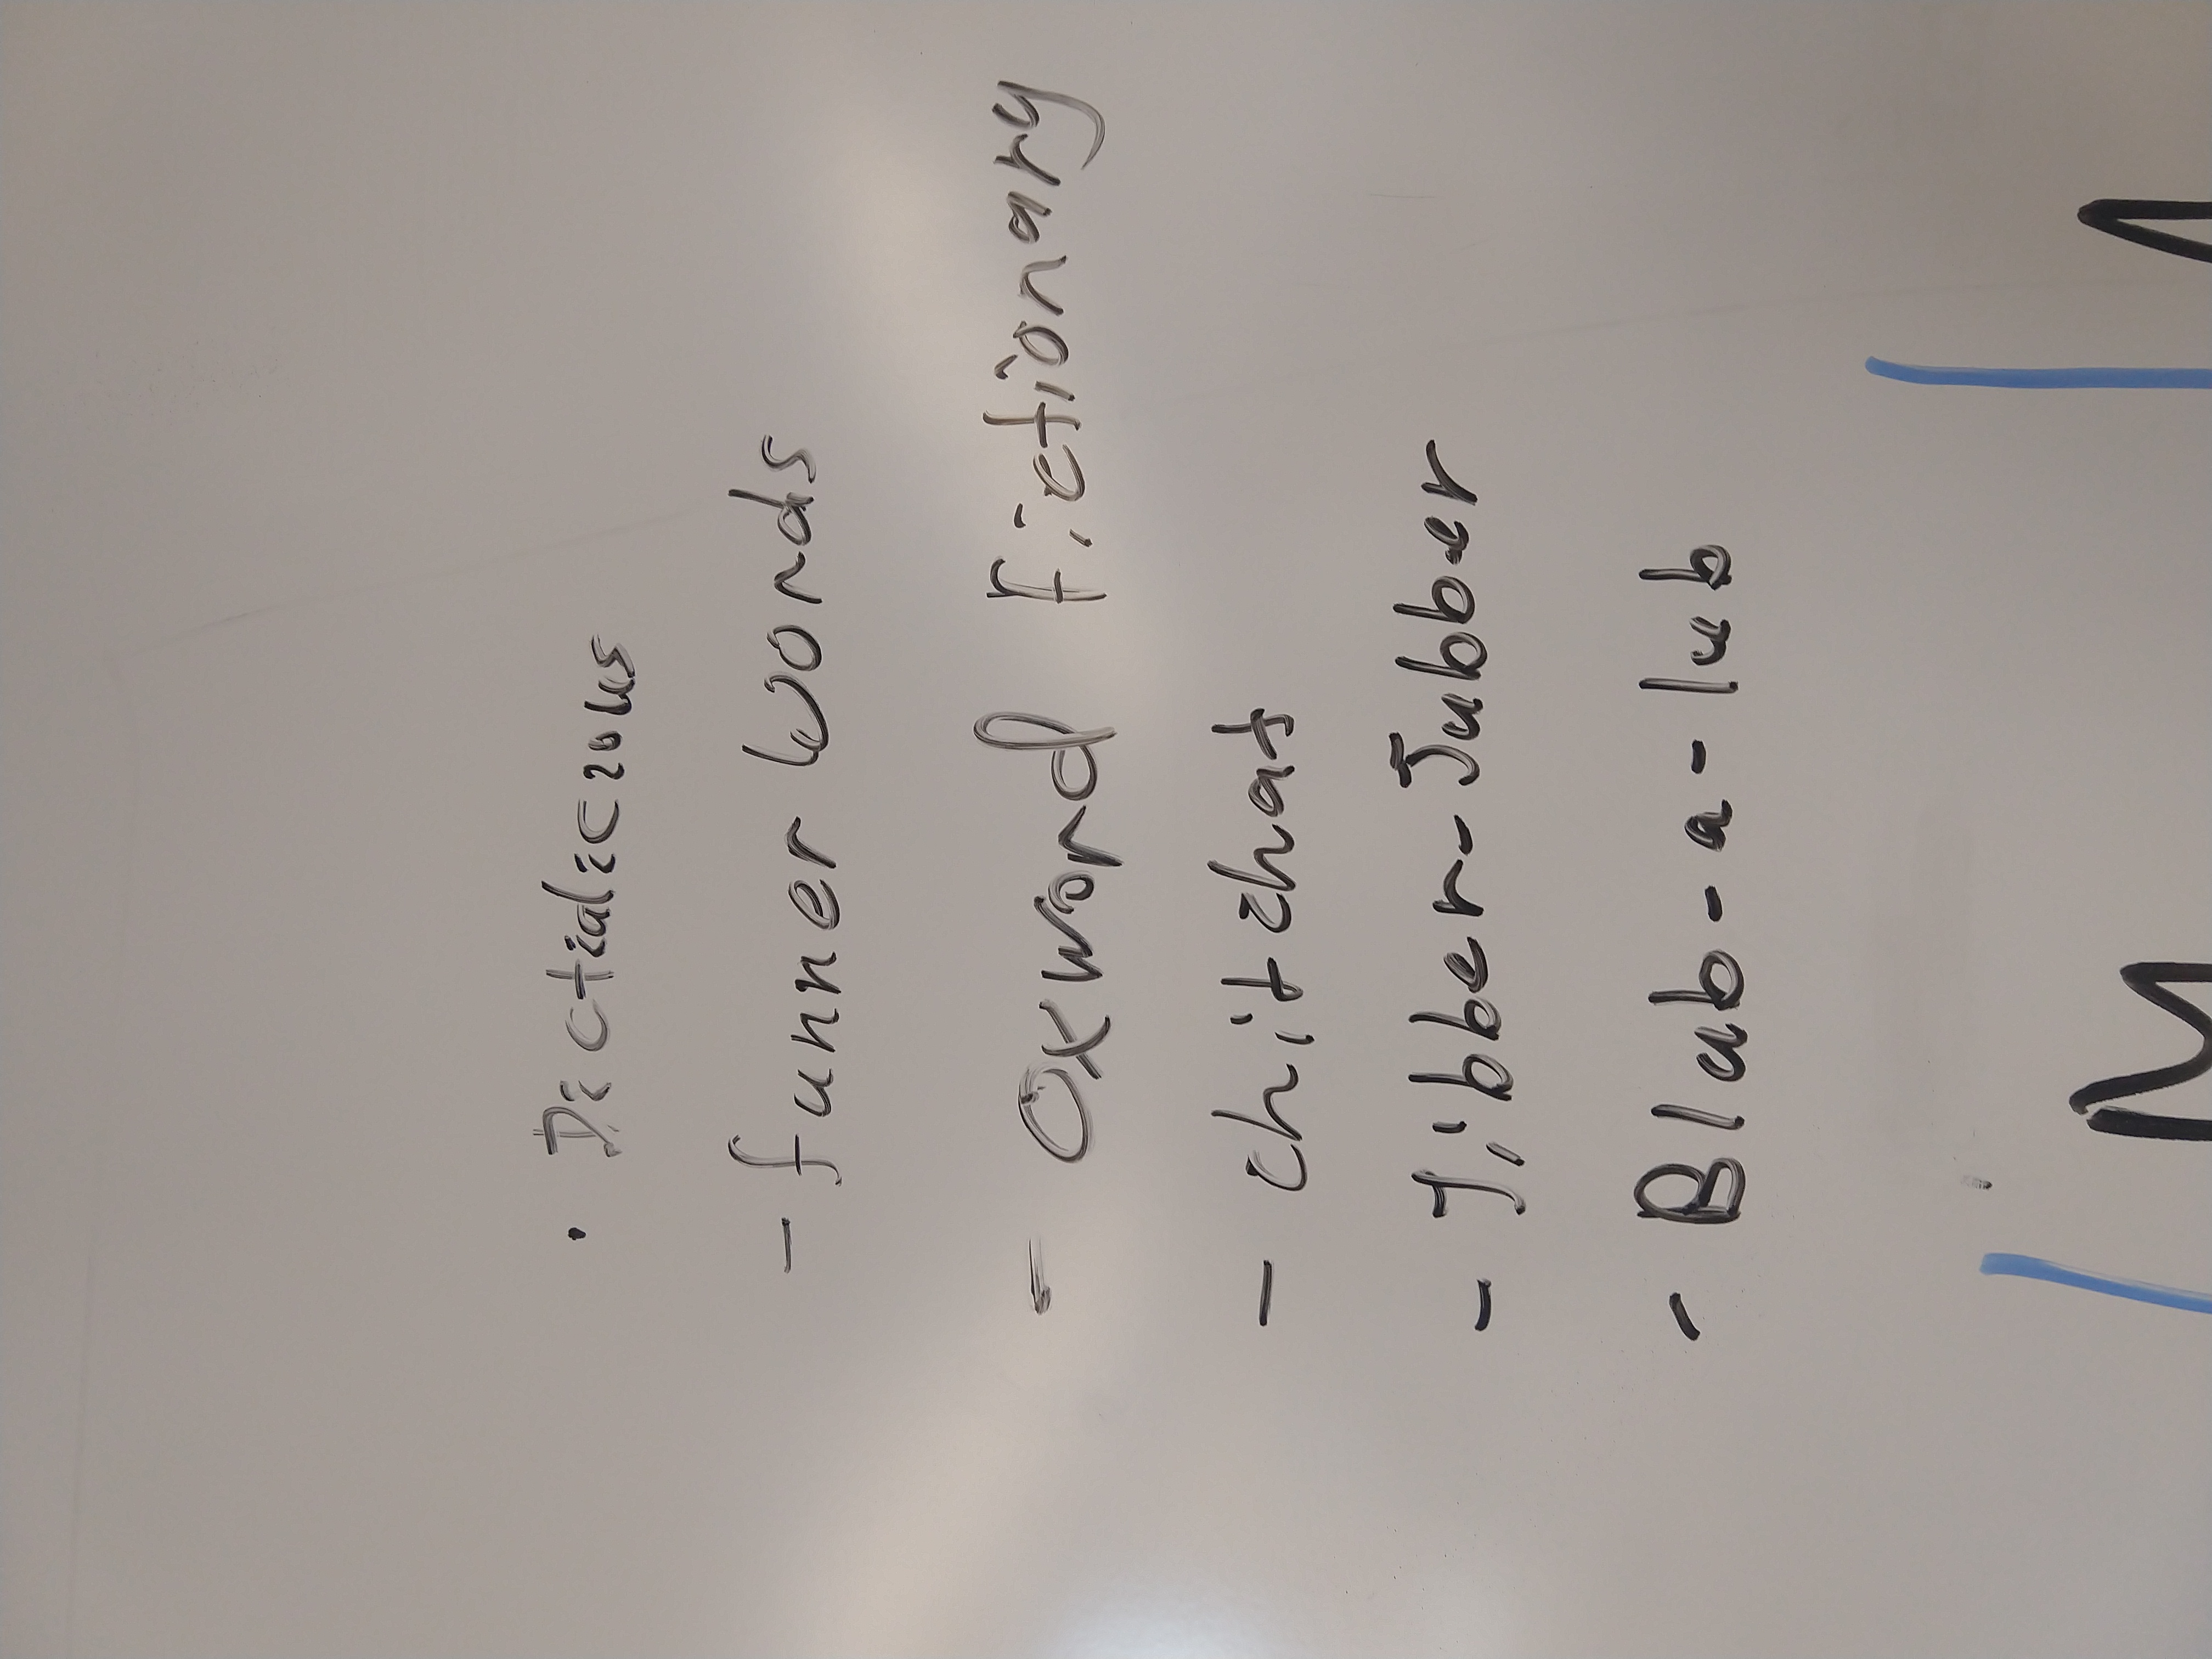 · Dictialicious
- funner Words
- Oxword Fictionary
- chitchat
- Jibber-Jubber
- Blab-a-lub
M